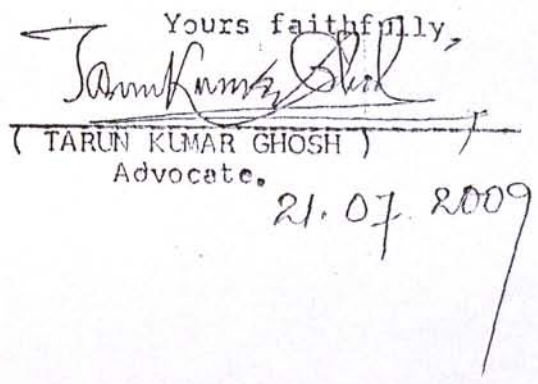 Yours faithfully,
Tarun Kumar Ghosh
( TARUN KUMAR GHOSH )
Advocate.
21.07.2009